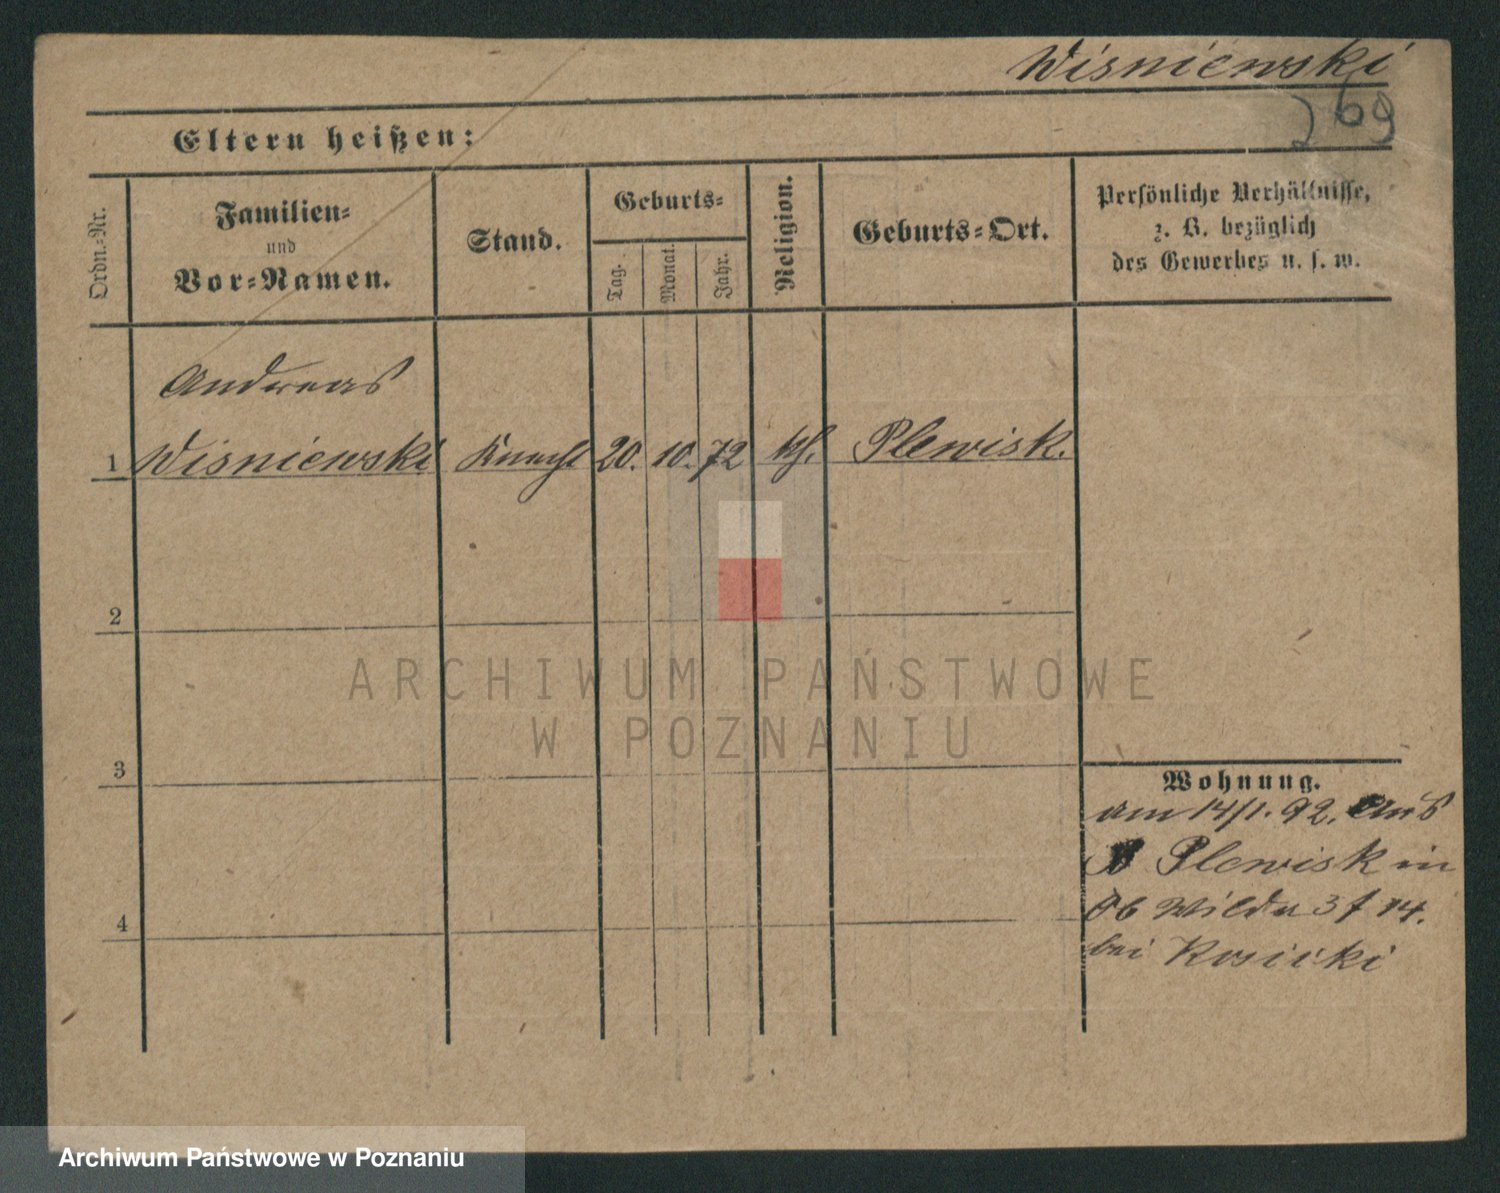 Wisniewski
269
Eltern heißen:
Ordn.-Nr.
Familien-
und
Vor-Namen.
Stand.
Geburts-
Tag.
Monat.
Jahr.
Religion.
Geburts-Ort.
Persönliche Verhältnisse,
z. B. bezüglich
des Gewerbes u. s. w.
Andreas
1 Wisniewski Knecht 20. 10. 72 kth. Plewisk.
2
3
4
Wohnung.
am 14/1. 92. Aus
Plewisk in
Ob Wilda 37 14.
bei Kosicki
ARCHIWUM PAŃSTWOWE
W POZNANIU
Archiwum Państwowe w Poznaniu